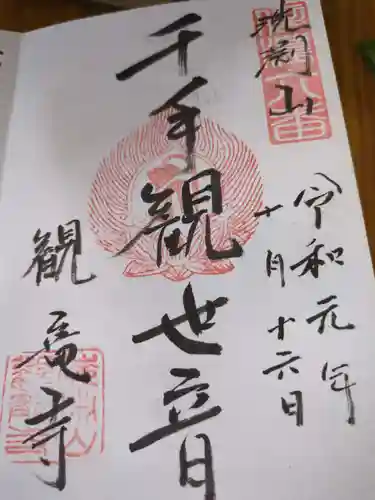 山
令和元年
十月十六日
千手観世音
観竜寺